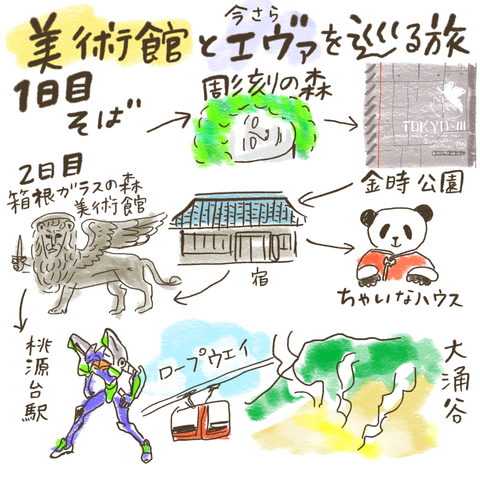 今さら
美術館とエヴァを巡る旅
1日目
そば
彫刻の森
TOKYO-III
金時公園
2日目
箱根ガラスの森
美術館
宿
ちゃいなハウス
桃源台駅
ロープウェイ
大涌谷